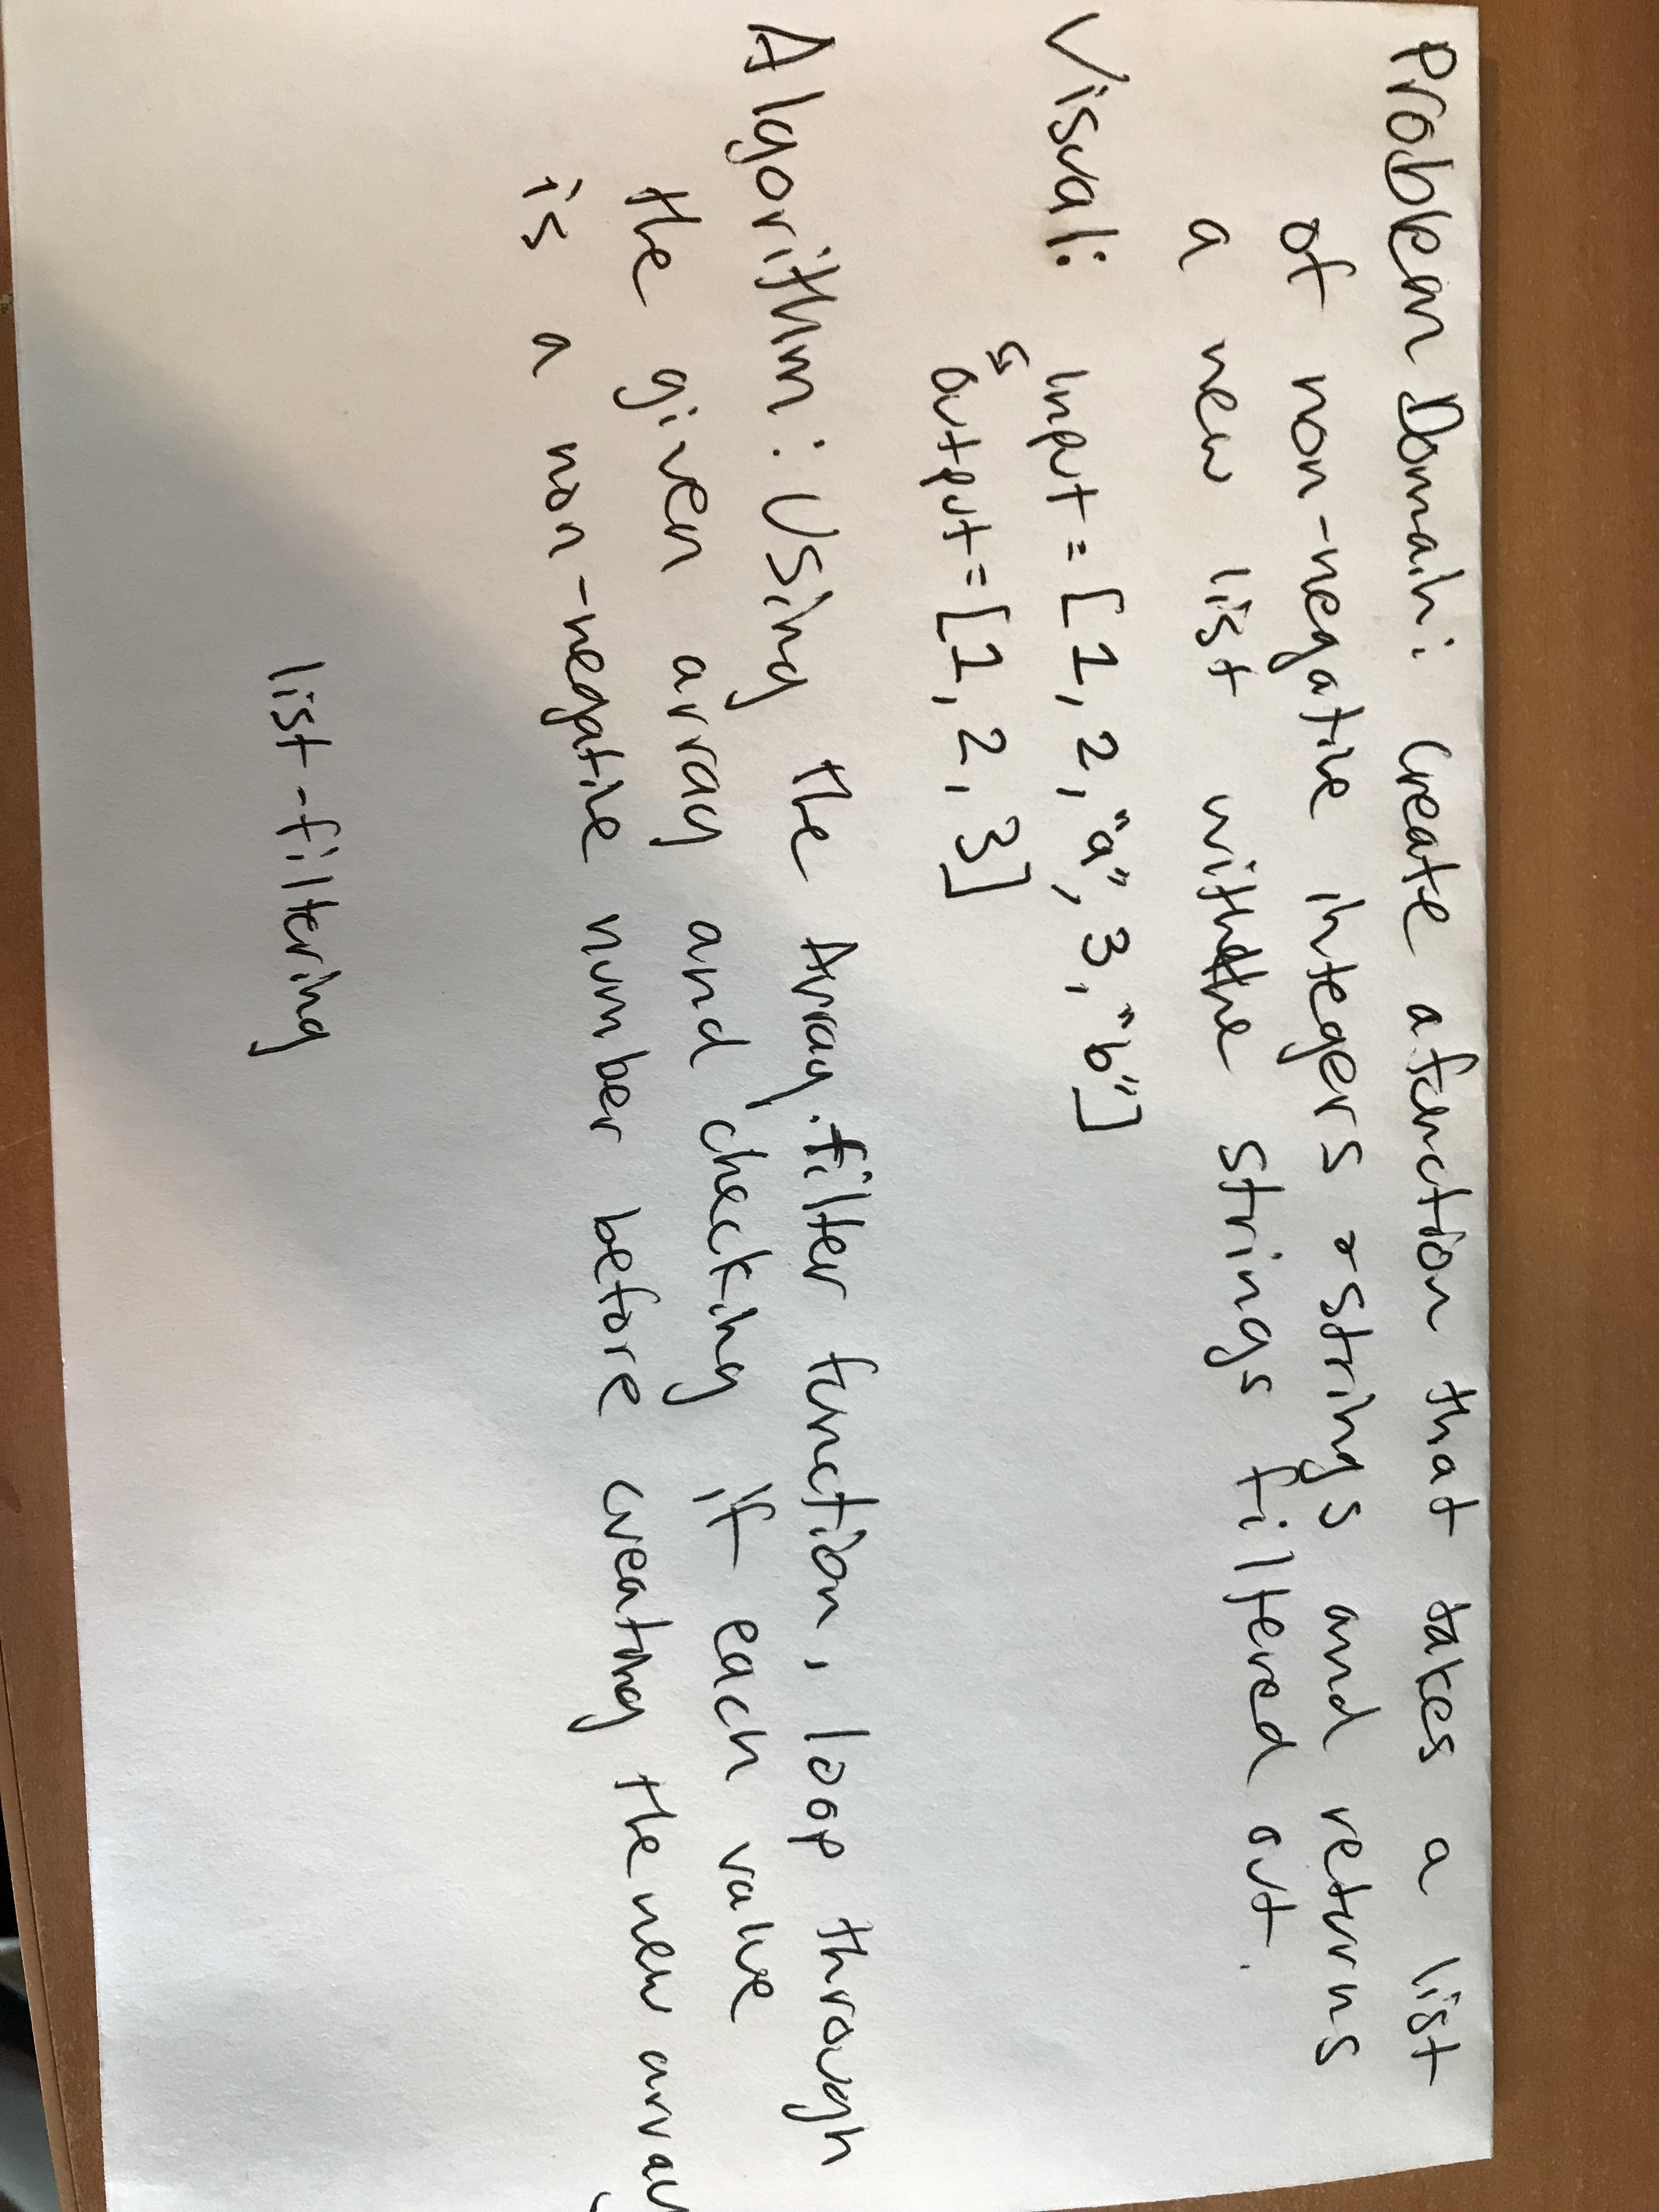 Problem Domain: Create a function that takes a list
of non-negative integers & strings and returns
a new list with the strings filtered out.
Visual: Input = [1, 2, "a", 3, "b"]
↳ output = [1, 2, 3]
Algorithm: Using the Array.filter function, loop through
the given array and checking if each value
is a non-negative number before creating the new array
list-filtering